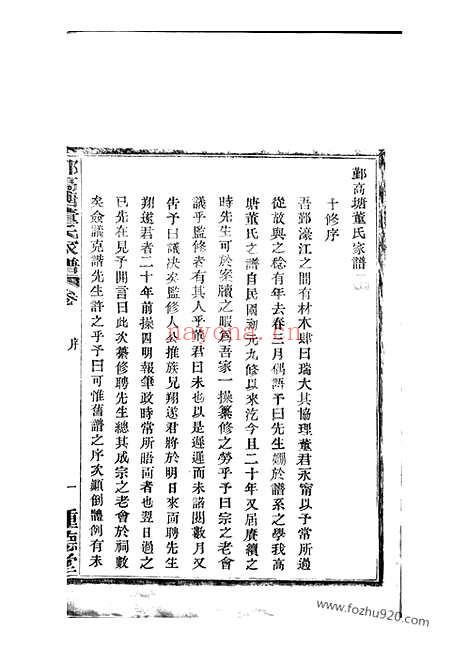 鄞高塘董氏家譜
十修序
吾鄞濠江之間有材木肆曰瑞大其協理董君永甯以予常所過
從故與之稔有年去春三月偶語予曰先生嫻於譜系之學我高
塘董氏之譜自民國初元九修以來迄今且二十年又屆賡續之
時先生可於案牘之暇為吾家一操纂修之勞乎予曰宗之老會
議乎監修者有其人乎董君曰未也以是遲遲而未諾閱數月又
告予曰議決矣監修人公推族兄翔遂君將於明日來面聘先生
翔遂君者二十年前操四明報筆政時常所晤面者也翌日過之
已先在見予開言曰此次纂修聘先生總其成宗之老會於祠數
矣僉議克諧先生許之乎予曰可惟舊譜之序次顛倒體例有未
鄞高塘董氏家譜
卷
序
一
種德堂
nayong.cn
www.fozhu920.com